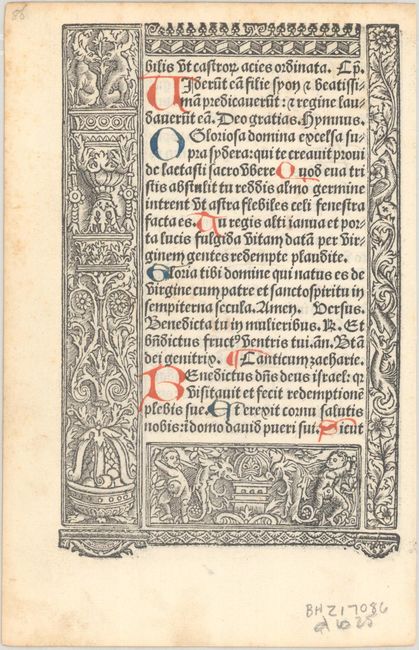 86
bilis vt castroꝝ acies ordinata. Cp̄.
Uiderūt eā filie syon ⁊ beatissi-
mā predicauerūt: ⁊ regine lau-
dauerūt eā. Deo gratias. Hymnus.
O Gloriosa domina excelsa su-
pra sydera: qui te creauit proui
de lactasti sacro vbere Quod eua tri
stis abstulit tu reddis almo germine
intrent vt astra flebiles celi fenestra
facta es. Tu regis alti ianua et por-
ta lucis fulgida vitam datā per vir-
ginem gentes redempte plaudite.
Gloria tibi domine qui natus es de
virgine cum patre et sanctospiritu in
sempiterna secula. Amen. Versus.
Benedicta tu in mulieribus. ꝶ. Et
bn̄dictus fruct⁹ ventris tui. an. Btā
dei genitrix. Canticum zacharie.
BEnedictus dn̄s deus israel: q
visitauit et fecit redemptionē
plebis sue. Et erexit cornu salutis
nobis: ī domo dauid pueri sui. Sicut
BHZ17086